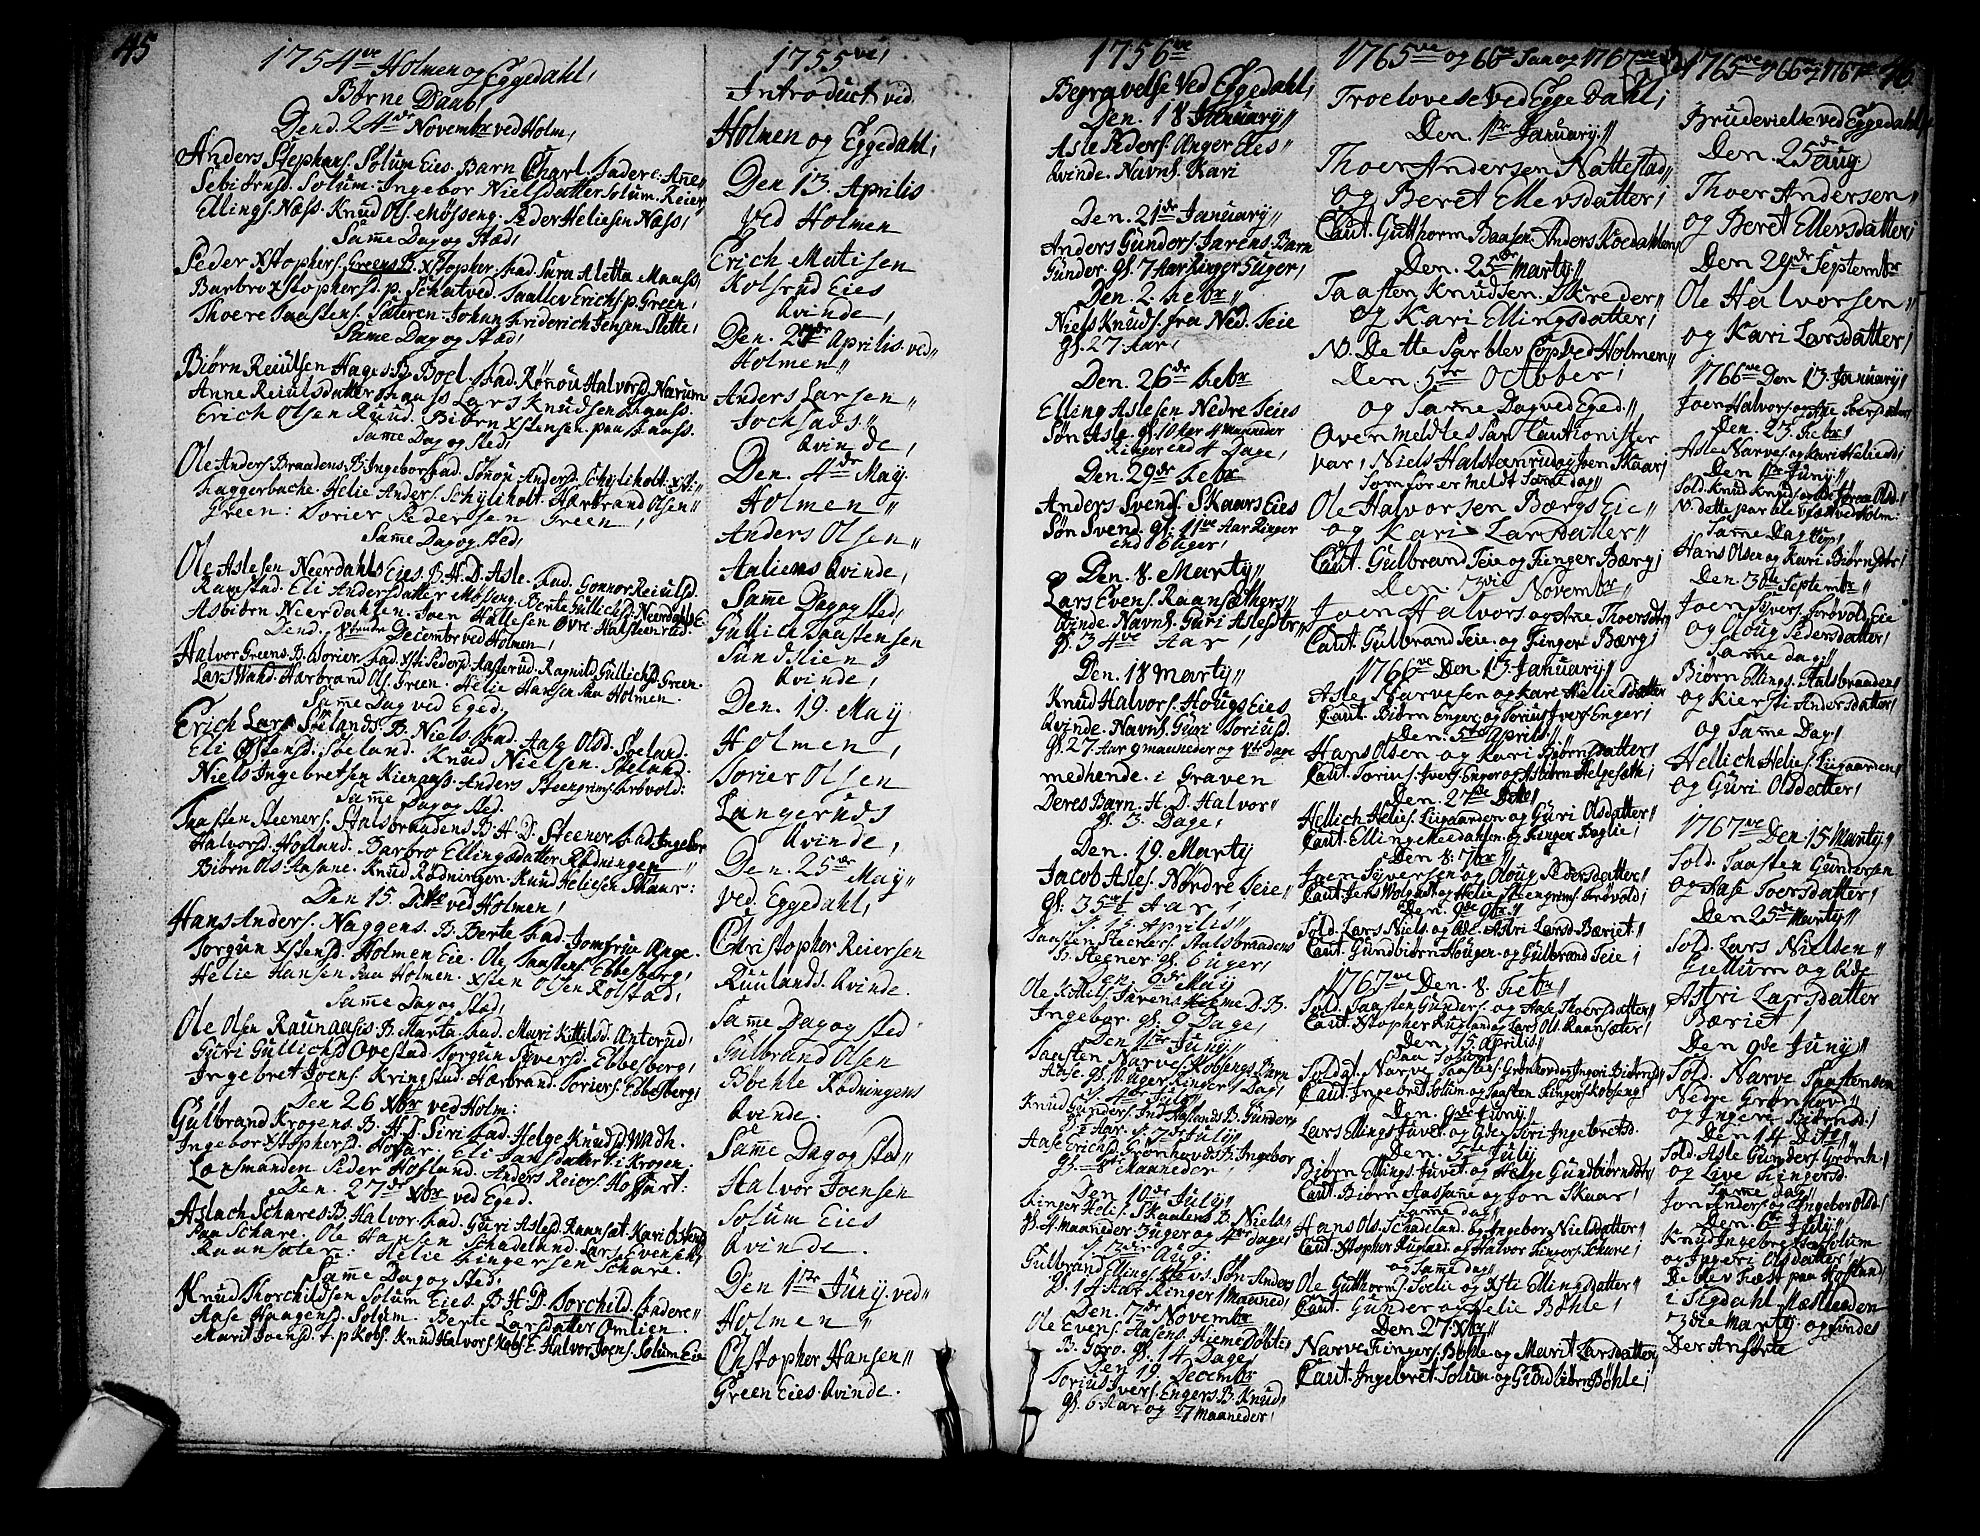 45
1754ve Holmen og Eggedahl,
Børne Daab,
Dend. 24de Novembr ved Holm,
Anders Stephans. Solum Eies. Barn Charl. fadere: Anne
Sebiørnsd. Solum. Ingebor Nielsdatter Solum. Reier
Ellings. Næss. Knud Ols. Møsseng. Peder Heliesen Næss,
Same Dag og Stæd,
Peder Xstophers. Greens B. Xstopher. fad. Sara Aletta Maass,
Barbro Xstophersd. p. Schatved. Taallev Erichs. p. Green,
Thore Taastens. Sateren. Johan Friderich Jensen Slette,
Same Dag og Stæd,
Biørn Reiulsen Hages B. Boel. fad. Rønou Halvorsd. Narum
Anne Reiulsdatter Lars Knudsen
Erich Olsen Ruud. Biørn Xstensen paa
Same Dag og sted,
Ole Anders. Braadens B. Ingebor fad. Anders. Schyliholt. Xsti
haggerbache. Helie Anders. Schyliholt. Harbrand Olsen
Green: Sorier Pedersen Green,
Same Dag og sted,
Ole Aslesen Neerdahls Eies. B. H. D. Asle. fad. Gonnor Reiulsd.
Ramstad. Eli Andersdatter Møseng. Berte Gullichsd. Neerdahls E.
Asbiørn Nierdahlen. Joen Hallesen Øvre. Halsteenrud.
Dend. 8tende Decembr ved Holmen,
Halvor Greens. B. Sorier fad. Xsti Pedersd. Aasterud. Ragnild Gullichsd. Green.
Lars Wahd. Harbrand Ols. Green. Helie Hansen paa Holmen.
Same Dag ved Eged.
Erich Lars. Søelands. B. Niels fad. Aase Olsd. Søeland.
Eli Østensd. Søeland. Knud Nielsen. Søeland.
Niels Ingebretsen Kienaas. Anders Steengrims. Frøvold:
Same Dag og sted.
Taasten Steeners. Stalsbraadens B. H. D. Steener. fad. Ingebor
Halvorsd. Hofland. Barbro Ellingsdatter Rødningen
Biørn Ols. Aasane. Knud Rødningen. Knud Heliesen Skaar:
Den 15. Dito ved Holmen,
Hans Anders. Naggens. B. Berte fad. Jomfrue Ange.
Torgun Xstensd. Holmen Eie. Ole Taastens. Ebbesberg,
Helie Hansen paa Holmen. Xsten Olsen Rolstad,
Same Dag og Stæd,
Ole Olsen Raunaasis B. Marta fad. Mari Kittilsd. Anterud,
Guri Gullichsd. Ovestad. Torgun Syversd. Ebbesberg,
Ingebret Joens. Kringstad. Harbrand. Soriers. Ebbesberg,
Den 26 Xbr ved Holm:
Gulbrand Krogens B. H. D. Siri fad. Helge Knudsd. Wadh.
Ingebor Xstophersd. Hofar. Eli Jansdatter i Krogen,
Lensmanden Peder Hofland. Anders Reiers. Hoffart:
Den. 27de Xbr ved Eged.
Aslach Schares B. Halvor fad. Guri Aslesd. Raansæt. Kari Ostensd
paa Schare. Ole Hansen Schadeland. Lars Evensen
Raansæter. Helie Fingersen Schare.
Same Dag og Sted,
Knud Thorchildsen Solum Eies. B. H. D. Torchild. fadere
Aase Haagensd. Solum. Berte Larsdatter Omlien.
Marit Joensd. t. p. Kobs. Knud Halvors. Kobs. E. Halvor Joens. Solum Eie
1755ve,
Introduct ved
Holmen og Eggedahl,
Den 13. Aprilis
Ved Holmen
Erich Matisen
Kolsrud Eies
Kvinde,
Den. Aprilis. ved
Holmen
Anders Larsen
Sochsads
Kvinde,
Den. 4de May.
Holmen
Anders Olsen
Aaliens Kvinde,
Same Dag og sted,
Gullich Taastensen
Sundsliens
Kvinde,
Den. 19. May
Holmen,
Sorier Olsen
Langeruds
Kvinde,
Den. 25de May
Ved. Eggedahl,
Christopher Reiersen
Ruulands. Kvinde.
Same Dag og sted
Gulbrand Olsen
Bøehle Rødningens
Kvinde.
Same Dag og Stæd
Halvor Joensen
Solum Eies
Kvinde.
Den 1ste Juny. ved
Holmen
Chstopher Hansen
Green Eies. Kvinde.
1756ve
Begravelse Ved Eggedahl,
Den. 18 January
Asle Peders. Anger Eies
Kvinde. Navnl. Kari
Den. 21de January
Anders Gunders. Jarens. Barn
Gunder. gl. 7 Aar ringer 5 uger,
Den. 2. Febr
Niels Knuds. fra Ned. Teie
gl. 27. Aar,
Den. 26de Febr
Elling Aslesen Nedre Teies
Søn Asle. gl. 10 Aar 4 maaneder
Ringer end 4 Dage,
Den. 29de Febr
Anders Svends. Skaars Eies
Søn Svend. gl. 11ve Aar Ringer
end 6 uger,
Den. 8. Marty
Lars Evens. Raansæthers
Kvinde Navnl. Guri Aslesdtr
gl. 34ve Aar,
Den. 18 marty
Knud Halvors. Hougs Eies
Kvinde. Navnl. Guri Soriusd.
gl. 27 Aar 9 maaneder og 8te dage
medhende i Graven
Deres Barn. H. D. Halvor
gl. 3. Dage,
Den. 19. Marty
Jacob Asles. Nørdre Teie
gl. 35 Aar,
Aprilis
Taasten Steeners. Stalsbraadens
S. Stegner. gl. 6 uger,
Den. 9de May
Ole Kittils. Jarens D. B.
Ingebor. gl. 9 Dage,
Den 1ste Juny
Taasten Narves. Kobsengs Barn
Aase. gl. 10. Uger Ringer 1 Dag,
July
Knud Gunders. B. Gunder
5 July
Aase Erichsd. Grønhovds B. Ingebor
gl. 8te Maaneder,
Den 10de July
Ringer Helis. Skaalens B. Niels,
gl. 4 maaneder 3 uger og 4er dage,
Aug:
Gulbrand Ellings. Søn Anders
gl. 1 Aar Ringer 1 Maaned,
Den. 7de Novembr
Ole Evens. Aasens. Hieme Døbte
B. Goro. gl. 14 Dage,
Den 19. Decembr
Sorius Ivers. Engers B. Knud
gl. 6 Aar og 7 Maaneder,
1765ve og 66ve Samt og 1767ve
Troelovese Ved Egge Dahl,
Den. 1ste January.
Thoer Andersen Nattestad
og Beret Ellevsdatter,
Caut. Gutthorm Baasen. Anders Roedahlen,
Den. 25de Marty
Taasten Knudsen. Skreder
og Kari Ellingsdatter,
N. De tte Par blev Cop. Ved Holmen
Den. 5te Octbber,
og Same Dag ved Eged.
Oven meldte Par Cautionister
var, Niels Halsteenrud og Joen Skaar,
Som for er meldt Same dag
Ole Halvorsen Bærgs Eie
og Kari Larsdatter
Caut. Gulbrand Teie og Finger Bærg,
Den. 3die Novembr
Joen Halvors. og Ane Thoersdtr
Caut. Gulbrand Teie. og Finger Bærg,
1766ve Den. 13. January
Asle Narvesen og Kari Helie Datter
Caut. Biørn Enger. og Sorius Ivers. Enger,
Den. 5te Aprilis
Hans Olsen og Kari Biørnsdatter
Caut. Sorius. Ivers. Enger og Asbiørn Helgeseth,
Den. 27de Dito
Hellich Helies. Liigaarden og Guri Olsdatter
Caut. Elling Needahlen og Finger Baglie,
Den 8. 7br
Joen Syversen og Oloug Pedersdatter,
Caut. Jens Wolgast og Helie Steengrims. Frøvold,
Den. 9de 9br.
Sold. Lars Niels. og Astri Larsd. Bæriet.
Caut. Gundbiørn Hougen. og Gulbrand Teie,
1767ve Den. 8. Feb
Sold. Taasten Gunders. og Aase Thoersdatter,
Caut. Xstopher Rugland og Lars Ols. Raansæter,
Den. 15 Aprilis
Paa Solum
Soldat. Narve Taastens. Grønhovd og Ingeri Biørnsd.
Caut. Ingebret Solum og Taasten Fingers. Kobseng,
Den. 9de Juny
Lars Ellings. Juvet. og Siri Ingebretsd.
Den. 5te July
Biørn Ellings. Juvet og Helge Gundbiørnsdtr
Caut. Biørn Aassane og Jon Skaar,
Same dag,
Hans Ols. Schadeland. og Ingebor Nielsdatter
Caut. Xstopher Rugland. og Halvor Fingers. Schare,
og Same dag
Ole Guthorms. Soelie og Xsti Ellingsdatter
Caut. Gunder og Helie Bøhle,
Den 27 Xbr
Narve Fingers. Bøhle og Marit Larsdatter
Caut. Ingebret. Solum og Gundbiørn Bøhle,
1765ve og 66 og 1767ve 46
Brudevielse ved Eggedahl
Den. 25de Aug
Thoer Andersen
og Beret Ellevsdatter,
Den 29de Septembr
Ole Halvorsen
og Kari Larsdatter,
1766ve Den 13. January,
Joen Halvors. og Ane Toersdatter
Den. 23. Febr
Asle Narves. og Kari Heliesd,
Den 1ste Juny
Sold. Knud Knuds. og Olsd.
N. dette par ble viæt ved Holm:
Same Dag
Hans Olsen og Kari Biørnsdtr,
Den. 3die Septembr
Joen Syvers. Frøvold Eie
og Oloug Pedersdatter,
Same dag
Biørn Ellings. Stalsbraaden
og Kiersti Andersdatter,
og Same Dag
Hellich Helies. Liigaarden
og Guri Olsdatter,
1767ve Den 15 Marty,
Sold. Taasten Gundersen
og Aase Toersdatter,
Den 25de Marty
Sold. Lars Nielsen
Giellum og
Astri Larsdatter
Bæriet,
Den 9de Juny
Sold. Narve Taastensen
Nedre Grønhovd
og Ingeri Biørnsd.
Den 14 Dito
Sold. Asle Gunders. Grønh.
og Live Fingersd.
Same dag
Jon Anders. og Ingebor Olsd.
Den. 6te July
Knud Ingebretsen Solum
og Ingeri Olsdatter,
De blev Fæst paa Hofland
i Sigdahl næstleden
3die Marty og findes
Der Anførte